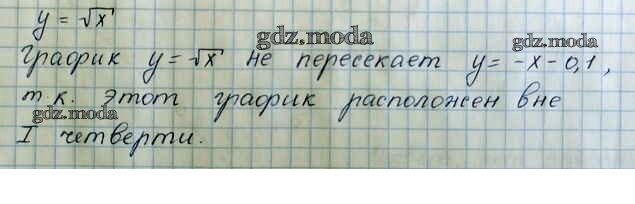 y = √x
gdz.moda
График y = √x не пересекает y = -x - 0,1,
gdz.moda
т.к. этот график расположен вне
gdz.moda
I четверти.